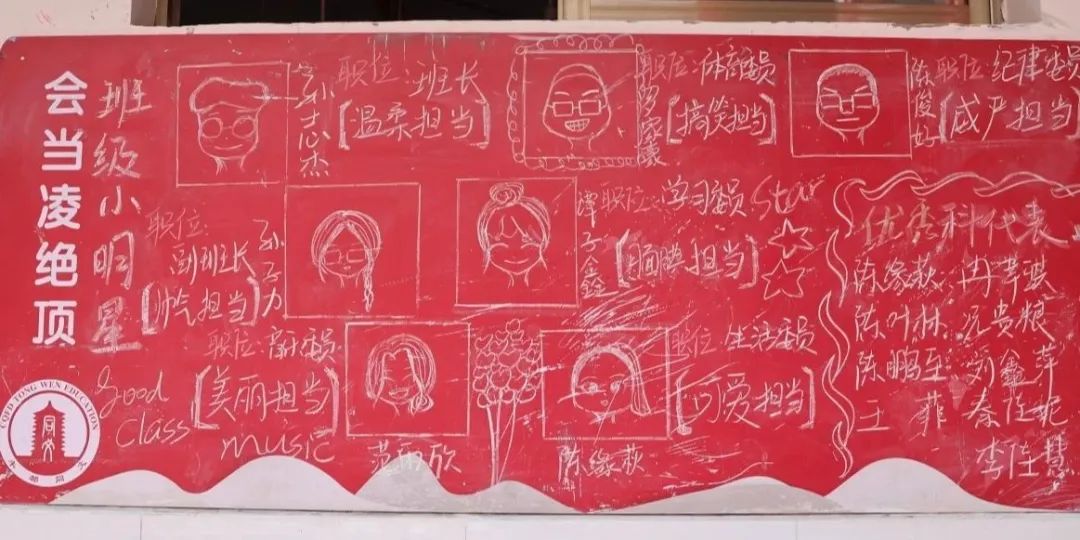 会当凌绝顶
班级小明星
职位:班长
[温柔担当]
职位:体育委员
[搞笑担当]
陈俊好
职位:纪律委员
[威严担当]
职位:
副班长
孙子力
担当]
谭子鑫
职位:学习委员
[面膜担当]
Star
职位:
委员
[美丽担当]
music
职位:生活委员
[可爱担当]
陈缘萩
优秀科代表
陈缘萩
陈叶林 况贵粮
陈鹏至 刘鑫萍
王菲 秦佳妮
李佳慧
Good
Class
TONG WEN EDUCATION